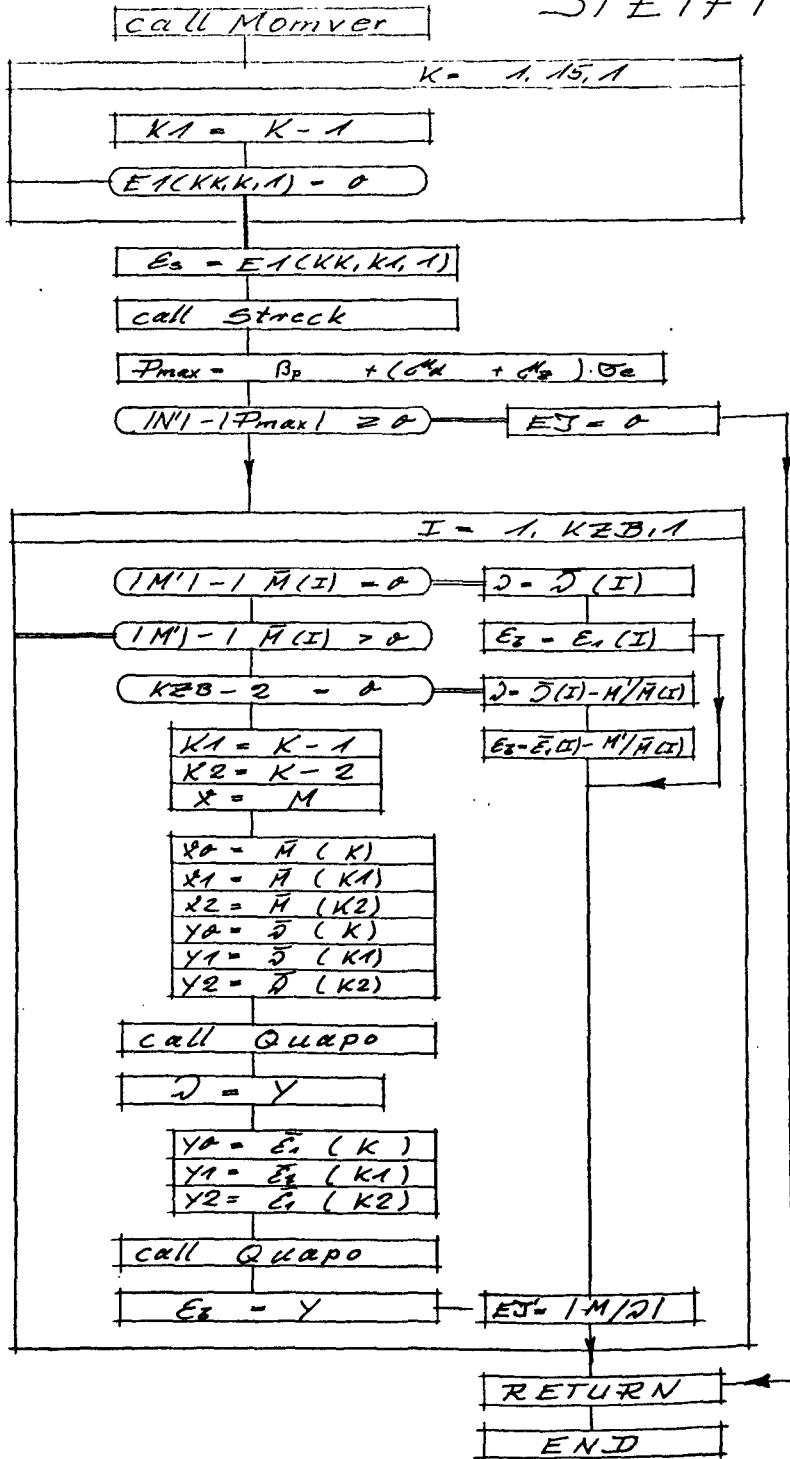 STEIF1
call Momver
K = 1, 15, 1
K1 = K - 1
E1(KK,K,1) = 0
εs = E1(KK,K1,1)
call Streck
Pmax = βp + (μd + μz) · σe
|N'| - |Pmax| ≥ 0
EJ = 0
I = 1, KZB, 1
|M'| - | M̄(I) = 0
ϑ = ϑ̄ (I)
|M'| - | M̄(I) > 0
εz = ε1(I)
KZB - 2 = 0
ϑ = ϑ̄(I) - M'/M̄(I)
K1 = K - 1
εz = ε̄1(I) - M'/M̄(I)
K2 = K - 2
X = M
X0 = M̄ (K)
X1 = M̄ (K1)
X2 = M̄ (K2)
Y0 = ϑ̄ (K)
Y1 = ϑ̄ (K1)
Y2 = ϑ̄ (K2)
call Quapo
ϑ = Y
Y0 = ε̄1 (K)
Y1 = ε̄1 (K1)
Y2 = ε̄1 (K2)
call Quapo
εz = Y
EJ' = |M/ϑ|
RETURN
END